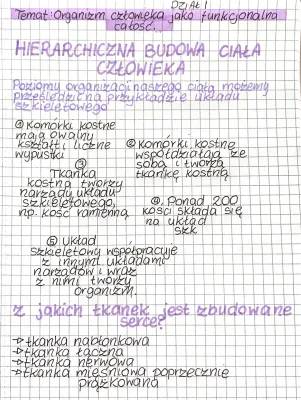 DZIAŁ 1
Temat: Organizm człowieka jako funkcjonalna
całość.
HIERARCHICZNA BUDOWA CIAŁA
CZŁOWIEKA
Poziomy organizacji naszego ciała możemy
prześledzić na przykładzie układu
szkieletowego
① Komórki kostne
mają owalny
kształt i liczne
wypustki
② Komórki kostne
współdziałają ze
sobą i tworzą
tkankę kostną
③
Tkanka
kostna tworzy
narządy układu
szkieletowego,
np. kość ramienną
④ Ponad 200
kości składa się
na układ
szk
⑤ Układ
szkieletowy współpracuje
z innymi układami
narządów i wraz
z nimi tworzy
organizm.
Z jakich tkanek jest zbudowane
serce?
→ tkanka nabłonkowa
→ tkanka łączna
→ tkanka nerwowa
→ tkanka mięśniowa poprzecznie
prążkowana